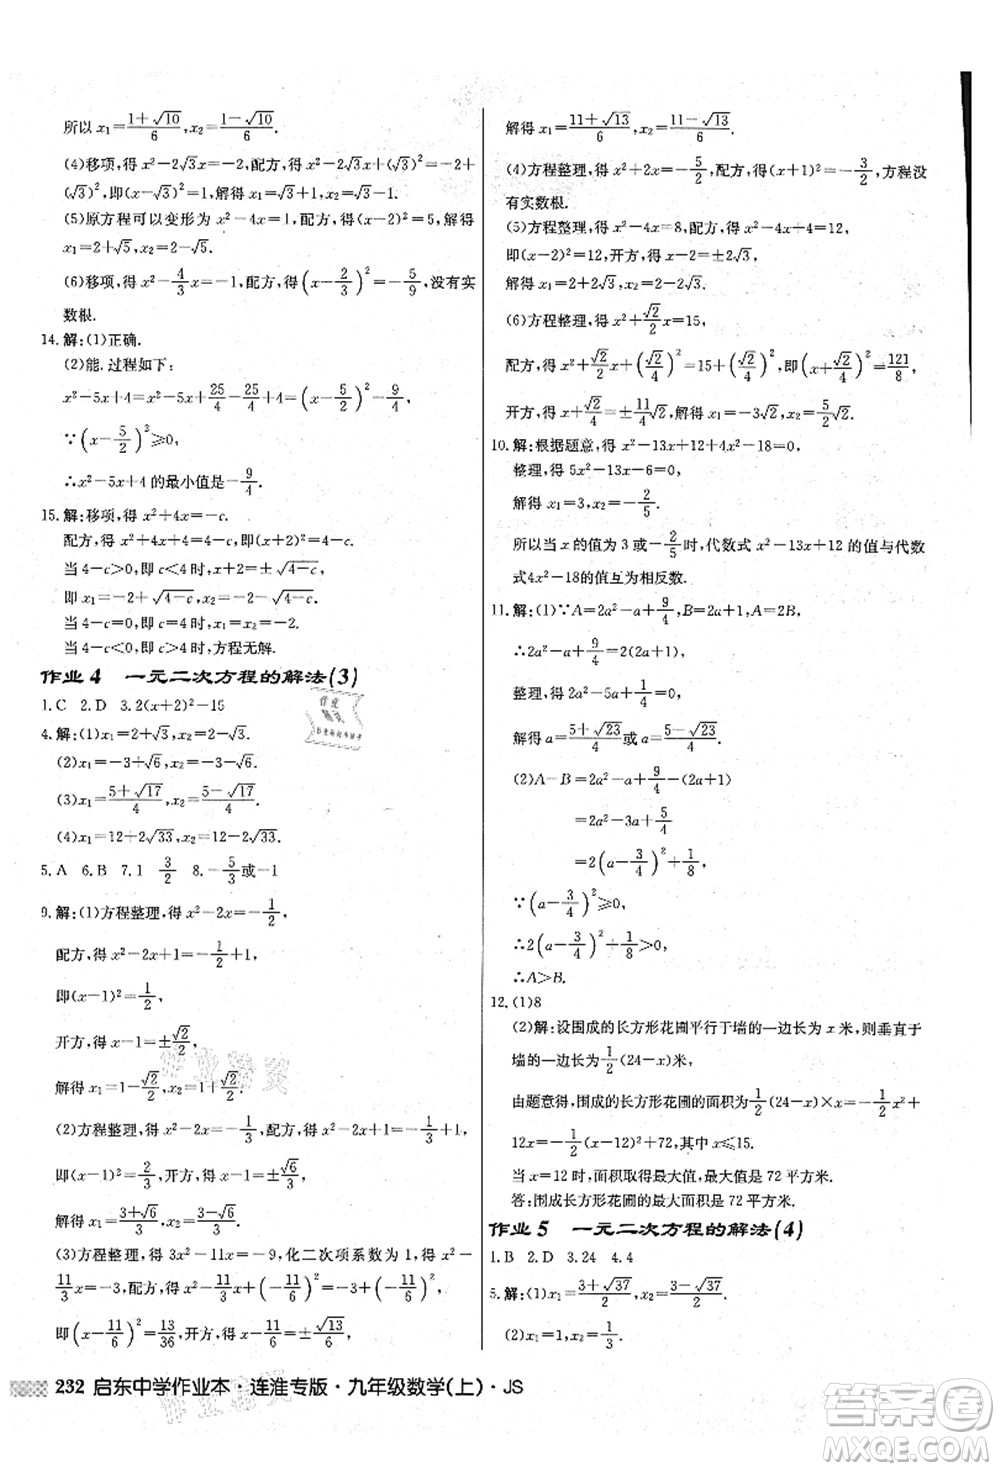 所以 x₁=(1+√10)/6, x₂=(1-√10)/6.
(4)移项,得 x²-2√3x=-2,配方,得 x²-2√3x+(√3)²=-2+
(√3)²,即(x-√3)²=1,解得 x₁=√3+1,x₂=√3-1.
(5)原方程可以变形为 x²-4x=1,配方,得(x-2)²=5,解得
x₁=2+√5,x₂=2-√5.
(6)移项,得 x²-4/3x=-1,配方,得(x-2/3)²=-5/9,没有实
数根.
14.解:(1)正确.
(2)能.过程如下:
x²-5x+4=x²-5x+25/4-25/4+4=(x-5/2)²-9/4.
∵(x-5/2)²≥0,
∴x²-5x+4 的最小值是-9/4.
15.解:移项,得 x²+4x=-c.
配方,得 x²+4x+4=4-c,即(x+2)²=4-c.
当 4-c>0,即 c<4 时,x+2=±√(4-c),
即 x₁=-2+√(4-c),x₂=-2-√(4-c).
当 4-c=0,即 c=4 时,x₁=x₂=-2.
当 4-c<0,即 c>4 时,方程无解.
作业 4 一元二次方程的解法(3)
1.C 2.D 3.2(x+2)²-15
4.解:(1)x₁=2+√3,x₂=2-√3.
(2)x₁=-3+√6,x₂=-3-√6.
(3)x₁=(5+√17)/4,x₂=(5-√17)/4.
(4)x₁=12+2√33,x₂=12-2√33.
5.A 6.B 7.1 3/2 8.-5/3或-1
9.解:(1)方程整理,得 x²-2x=-1/2,
配方,得 x²-2x+1=-1/2+1,
即(x-1)²=1/2,
开方,得 x-1=±√2/2,
解得 x₁=1+√2/2,x₂=1-√2/2.
(2)方程整理,得 x²-x+1/4=-1/12+1/4,
即(x-1/2)²=1/6,开方,得 x-1/2=±√6/6,
解得 x₁=(3+√6)/6,x₂=(3-√6)/6.
(3)方程整理,得 3x²-11x=-9,化二次项系数为 1,得 x²-
11/3x=-3,配方,得 x²-11/3x+(-11/6)²=-3+(-11/6)²,
即(x-11/6)²=13/36,开方,得 x-11/6=±√13/6,
解得 x₁=(11+√13)/6,x₂=(11-√13)/6.
(4)方程整理,得 x²+2x=-5/2,配方,得(x+1)²=-3/2,方程没
有实数根.
(5)方程整理,得 x²-4x=8,配方,得 x²-4x+4=12,
即(x-2)²=12,开方,得 x-2=±2√3,
解得 x₁=2+2√3,x₂=2-2√3.
(6)方程整理,得 x²+√2/2x=15,
配方,得 x²+√2/2x+(√2/4)²=15+(√2/4)²,即(x+√2/4)²=121/8,
开方,得 x+√2/4=±11/4√2,解得 x₁=-3√2,x₂=5√2/2.
10.解:根据题意,得 x²-13x+12+4x²-18=0,
整理,得 5x²-13x-6=0,
解得 x₁=3,x₂=-2/5.
所以当 x 的值为 3 或-2/5时,代数式 x²-13x+12 的值与代数
式4x²-18的值互为相反数.
11.解:(1)∵A=2a²-a+9/4,B=a²+1,A=2B,
∴2a²-a+9/4=2a²+2,
解得 a=(5+√23)/4或 a=(5-√23)/4.
(2)A-B=2a²-a+9/4-a-1
=2a²-2a+5/4
=2(a-3/4)²+1/8.
∵(a-3/4)²≥0,
∴2(a-3/4)²+1/8>0,
∴A>B.
12.(1)8
(2)解:设围成的长方形花圃平行于墙的一边长为 x 米,则垂直于
墙的一边长为1/2(24-x)米,
由题意得,围成的长方形花圃的面积为1/2(24-x)×x=-1/2x²+
12x=-1/2(x-12)²+72,其中 x≤15.
当 x=12 时,面积取得最大值,最大值是 72 平方米.
答:围成长方形花圃的最大面积是 72 平方米.
作业 5 一元二次方程的解法(4)
1.B 2.D 3.24 4.4
5.解:(1)x₁=(3+√37)/2,x₂=(3-√37)/2.
(2)x₁=1,x₂=1/3.
232 启东中学作业本·连淮专版·九年级数学(上)·JS
答案圈
MXQE.COM